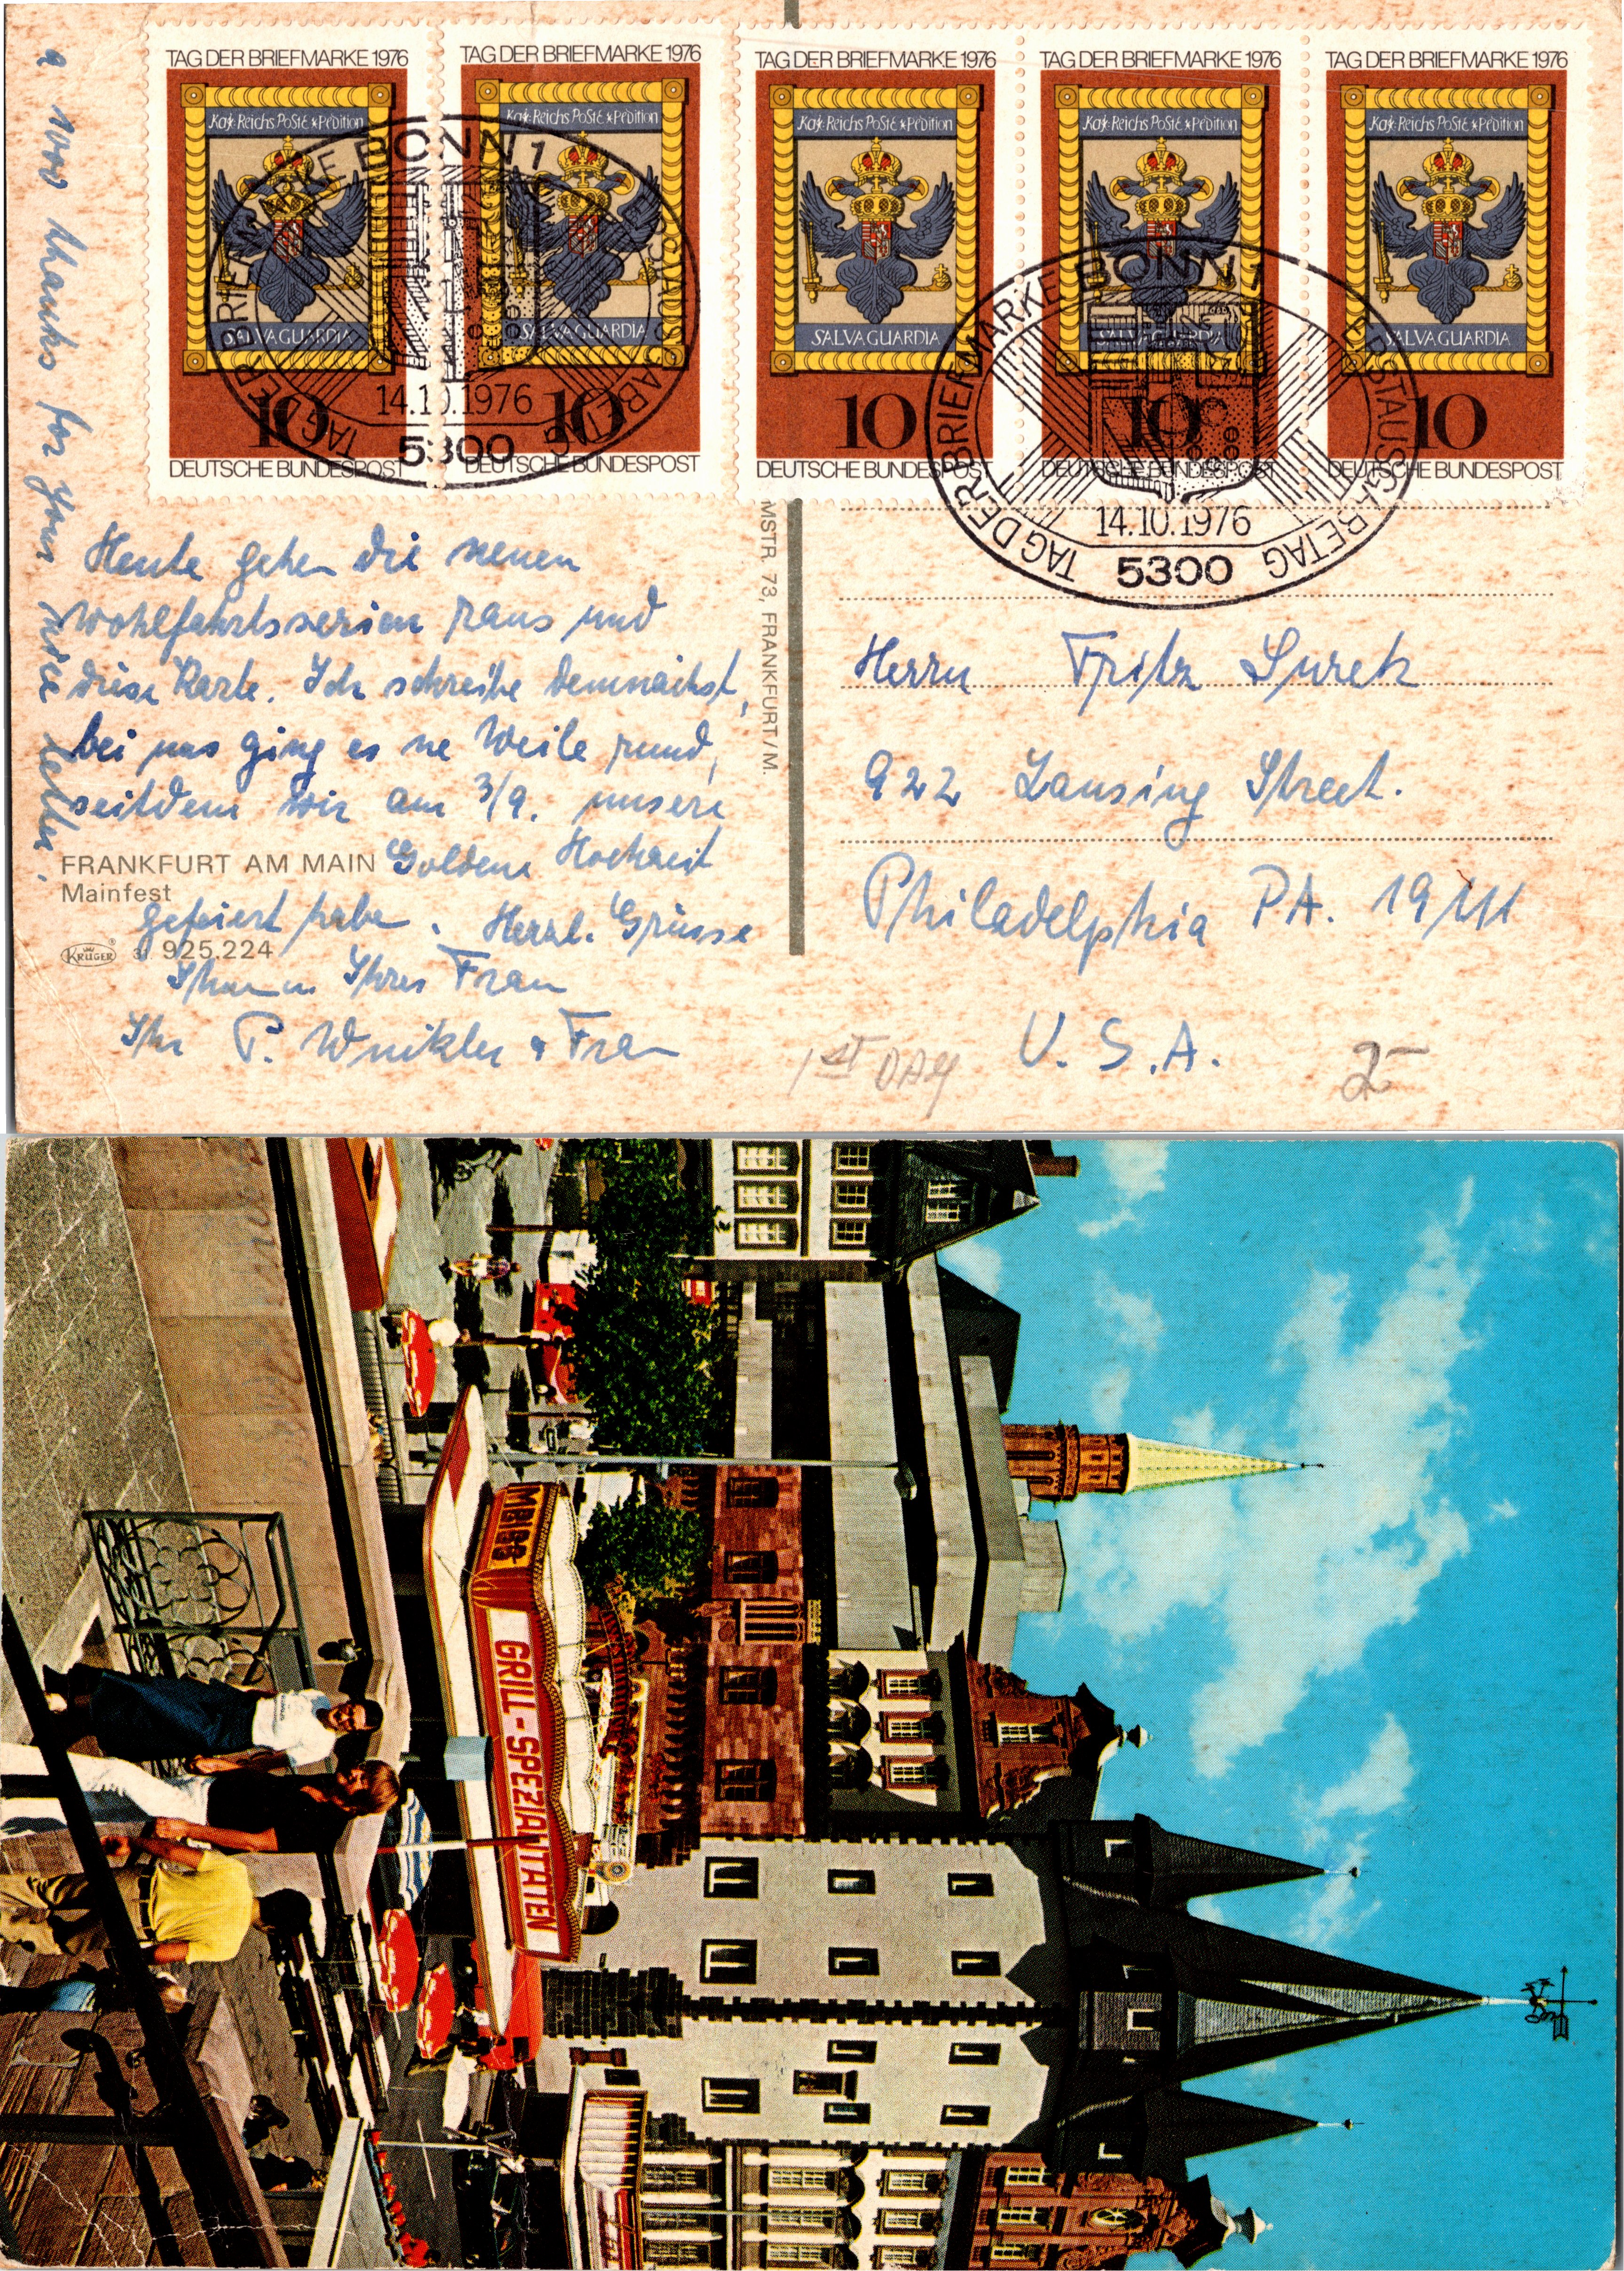 TAG DER BRIEFMARKE 1976
Kays: Reichs PoStE ★ Pedition
SALVA GUARDIA
10
DEUTSCHE BUNDESPOST
TAG DER BRIEFMARKE 1976
Kays: Reichs PoStE ★ Pedition
SALVA GUARDIA
10
DEUTSCHE BUNDESPOST
TAG DER BRIEFMARKE 1976
Kays: Reichs PoStE ★ Pedition
SALVA GUARDIA
10
DEUTSCHE BUNDESPOST
TAG DER BRIEFMARKE 1976
Kays: Reichs PoStE ★ Pedition
SALVA GUARDIA
10
DEUTSCHE BUNDESPOST
TAG DER BRIEFMARKE 1976
Kays: Reichs PoStE ★ Pedition
SALVA GUARDIA
10
DEUTSCHE BUNDESPOST
BONN 1
TAG DER BRIEFMARKE
ERSTAUSGABETAG
14.10.1976
5300
BONN 1
TAG DER BRIEFMARKE
ERSTAUSGABETAG
14.10.1976
5300
Heute gehen die neuen
Wohlfahrtsserien raus und
diese Karte. Ich schreibe demnächst,
bei uns ging es ne Weile rund,
seitdem wir am 3/9. unsere
Goldene Hochzeit
gefeiert habe. Herzl. Grüsse
Ihnen u. Ihrer Frau
Ihr P. Winkler & Frau
a 1000 thanks for your nice letter.
FRANKFURT AM MAIN
Mainfest
KRÜGER ® 31 925.224
MSTR. 73, FRANKFURT/M.
Herrn Fritz Surek
922 Lansing Street.
Philadelphia PA. 19111
U.S.A.
1ST DAY
2-
GRILL-SPEZIALITÄTEN